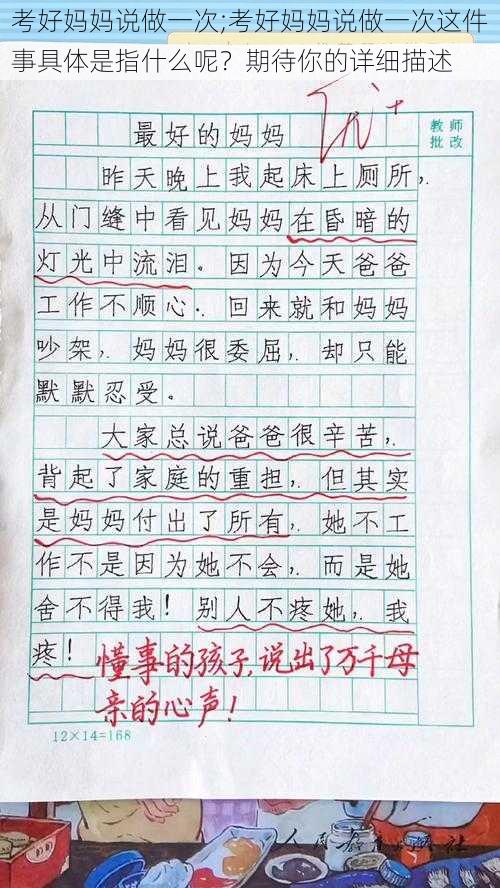 考好妈妈说做一次;考好妈妈说做一次这件
事具体是指什么呢？期待你的详细描述
优+
教师
批改
最好的妈妈
昨天晚上我起床上厕所，
从门缝中看见妈妈在昏暗的
灯光中流泪。因为今天爸爸
工作不顺心. 回来就和妈妈
吵架，妈妈很委屈，却只能
默默忍受。
大家总说爸爸很辛苦，
背起了家庭的重担，但其实
是妈妈付出了所有，她不工
作不是因为她不会，而是她
舍不得我！别人不疼她，我
疼！
懂事的孩子,说出了万千母
亲的心声！
12×14=168
人民教育出版社